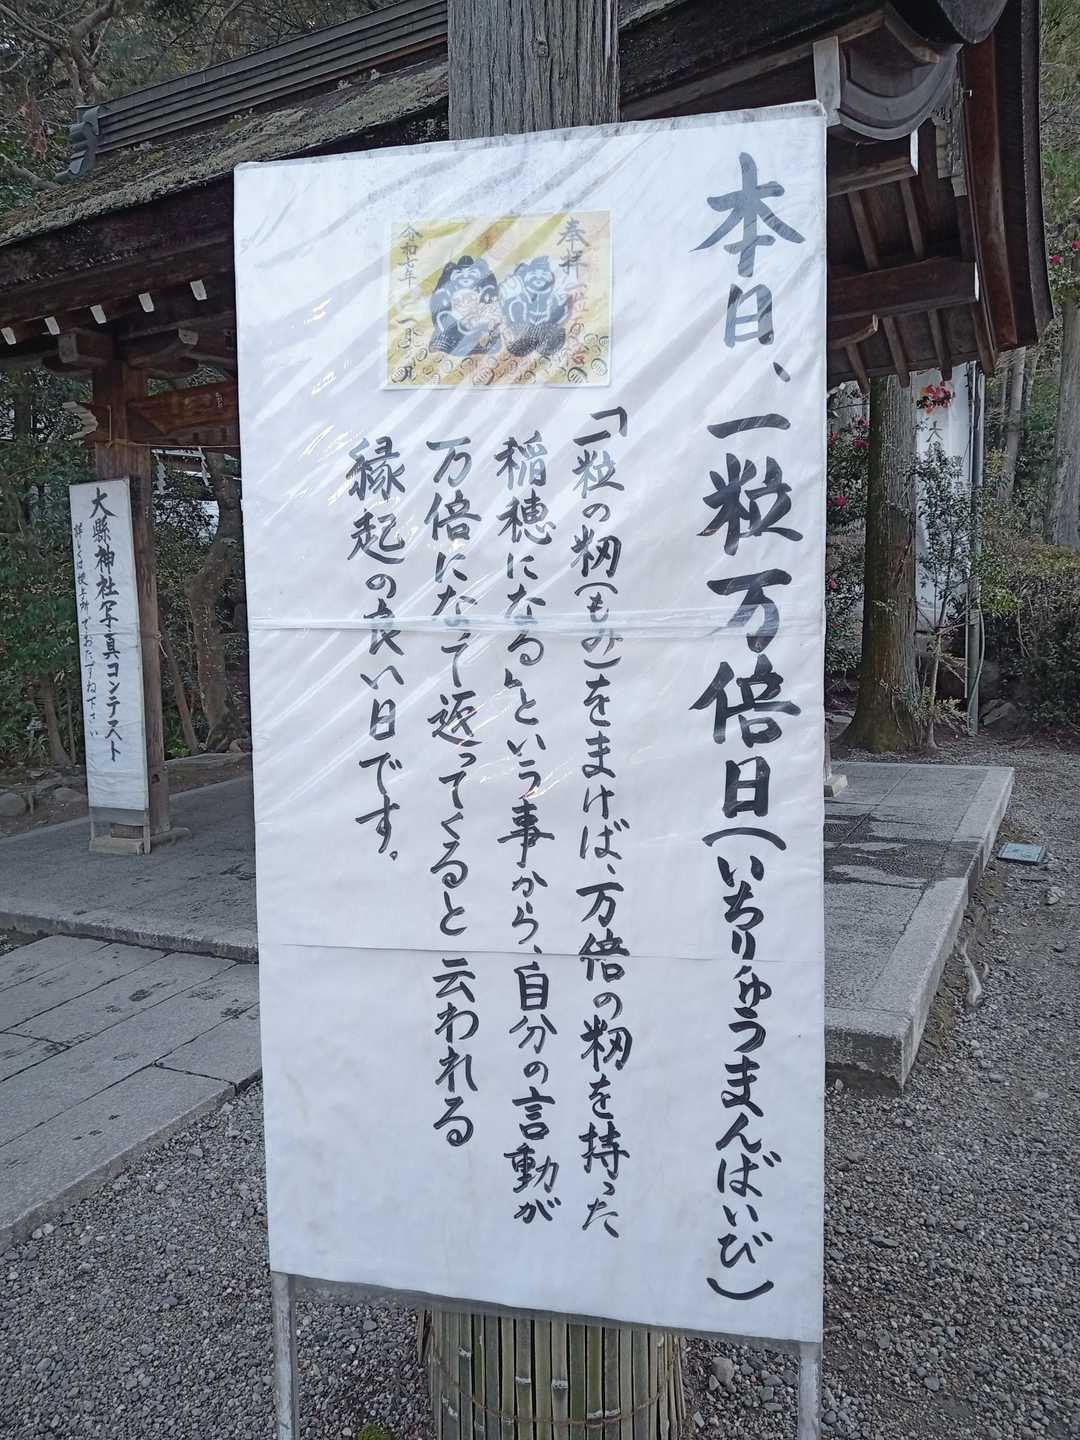 本日、一粒万倍日(いちりゅうまんばいび)
「一粒の籾(もみ)をまけば、万倍の籾を持った
稲穂になる」という事から、自分の言動が
万倍になって返ってくると云われる
縁起の良い日です。
奉拝
一粒万倍日
令和七年
大縣神社写真コンテスト
詳しくは授与所でおたずね下さい
大